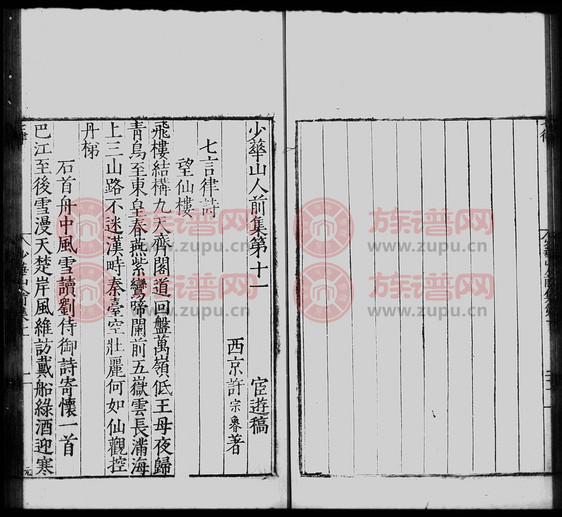 少華山人前集第十一
宦遊稿
西京許宗魯著
七言律詩
望仙樓
飛樓結構九天齊閣道回盤萬嶺低王母夜歸
青鳥至東皇春燕紫鸞啼闌前五嶽雲長滿海
上三山路不迷漢時秦臺空壯麗何如仙觀控
丹梯
石首舟中風雪讀劉侍御詩寄懷一首
巴江至後雪漫天楚岸風維訪戴船綠酒迎寒
族谱网
www.zupu.cn
族谱网
www.zupu.cn
族谱网
www.zupu.cn
族谱网
www.zupu.cn